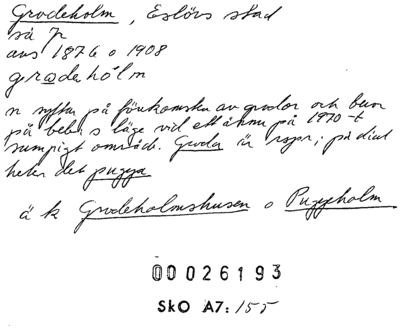 Grodeholm, Eslövs stad
så p
ans 1876 o 1908
grodehólm
n syftar på förekomsten av grodor och beror
på beteb:s läge vid ett ännu på 1970-t
sumpigt område. Groda är rspr; på dial
heter det pugga
ä k Grodeholmshusen o Puggeholm
00026193
SkO A7:155